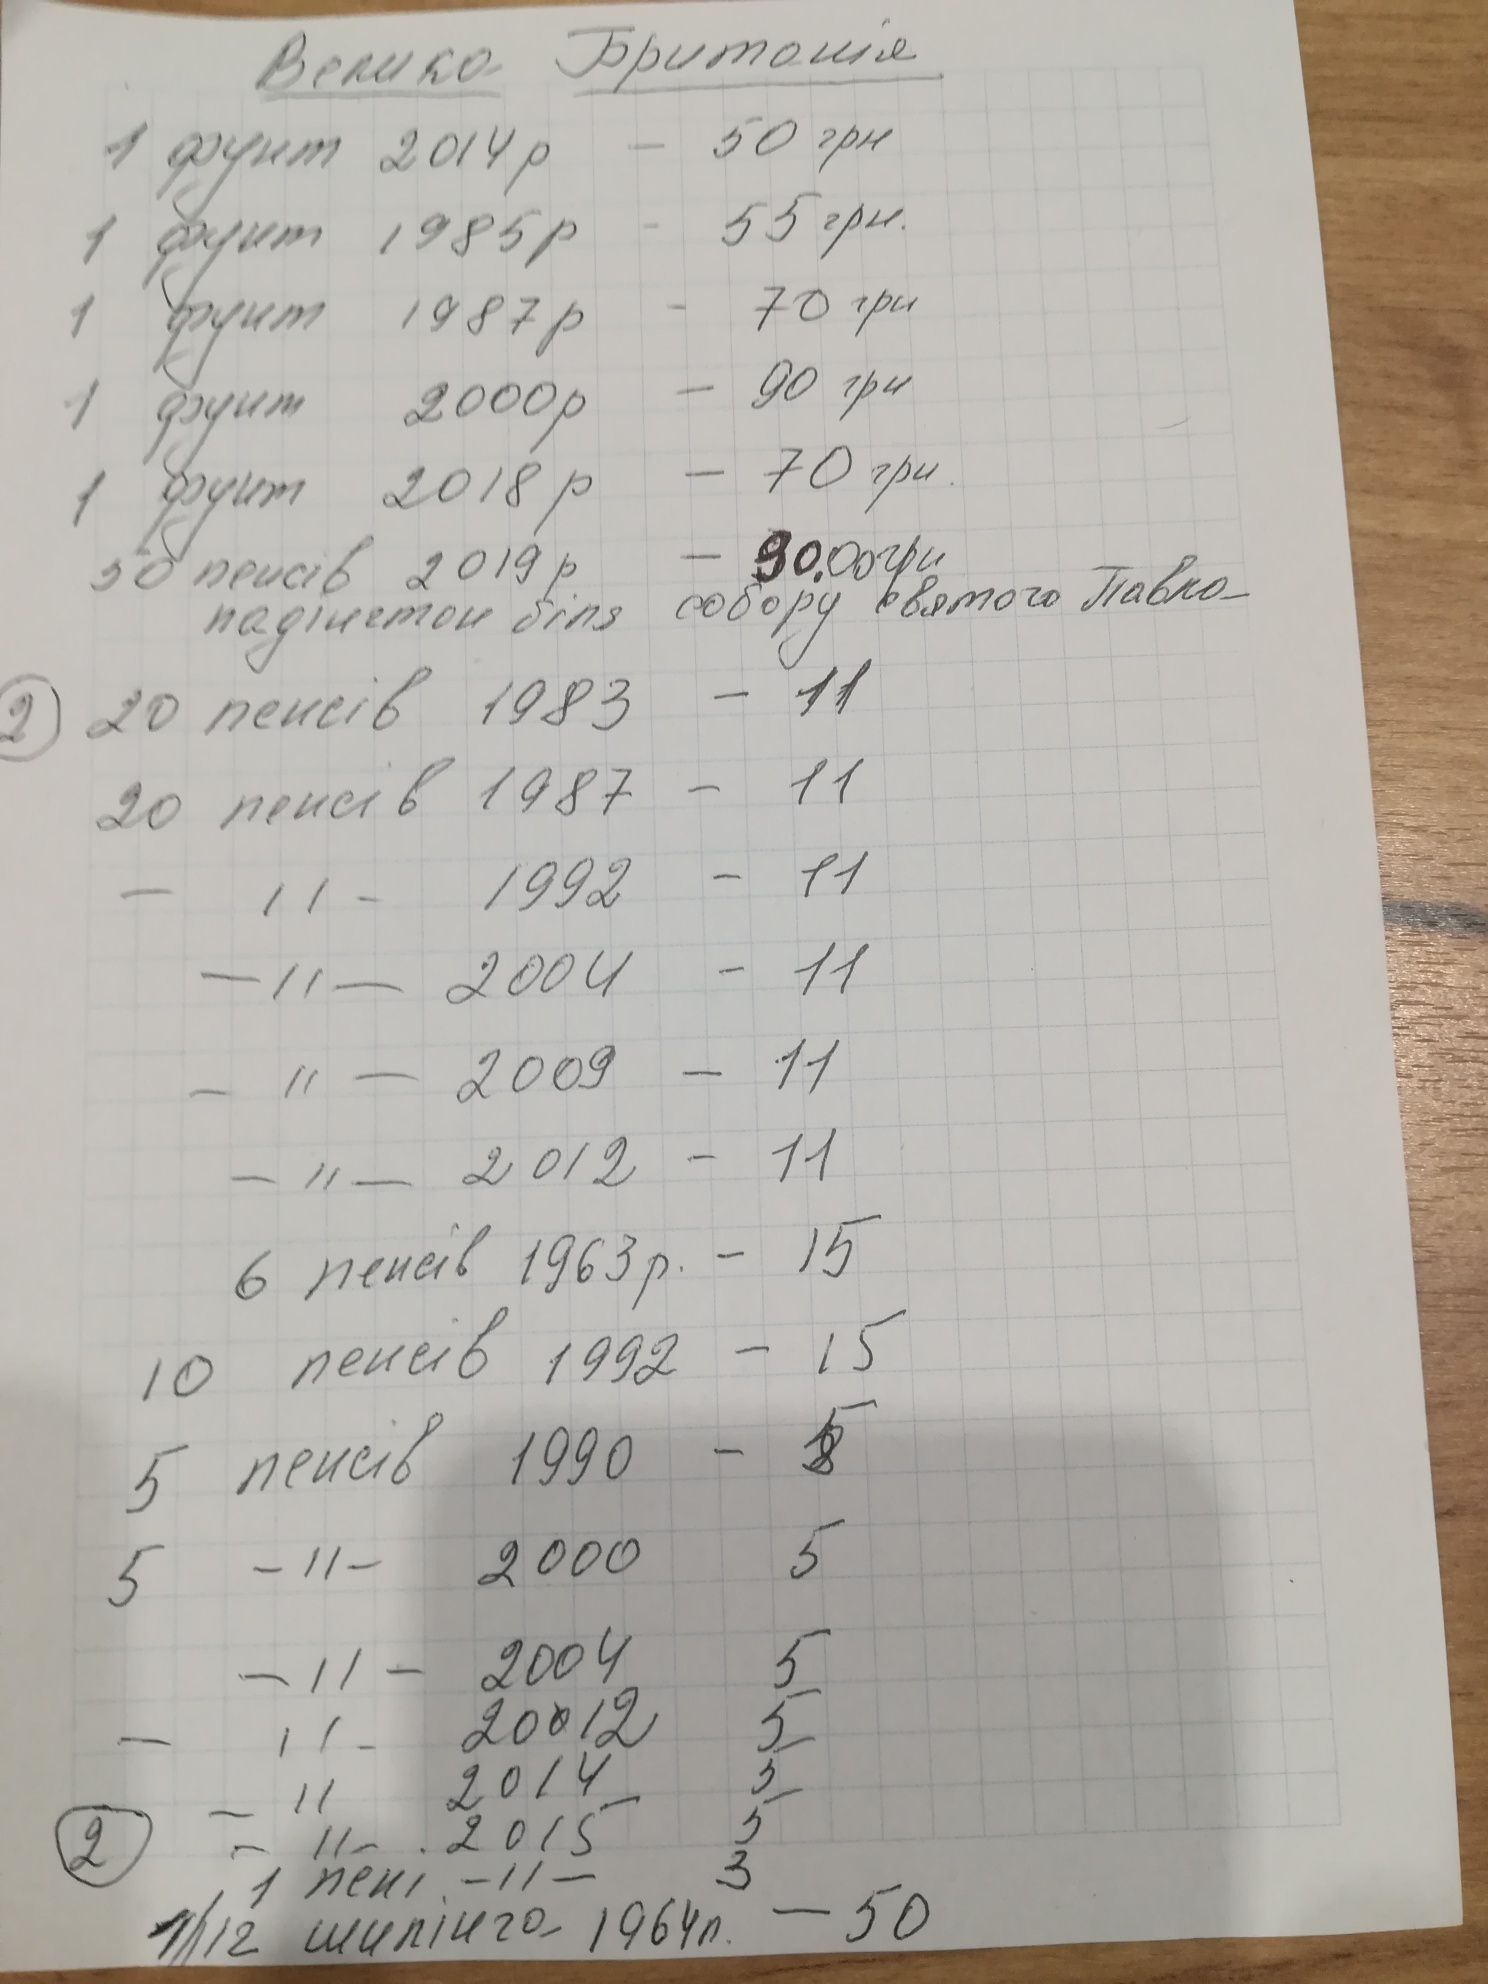 Велика Британія
1 фунт 2014р - 50 грн
1 фунт 1985р - 55 грн.
1 фунт 1987р - 70 грн
1 фунт 2000р - 90 грн
1 фунт 2018р - 70 грн.
50 пенсів 2019р - 90.00грн
падінгтон біля собору святого Павла
2 20 пенсів 1983 - 11
20 пенсів 1987 - 11
- 11 - 1992 - 11
- 11 - 2004 - 11
- 11 - 2009 - 11
- 11 - 2012 - 11
6 пенсів 1963р. - 15
10 пенсів 1992 - 15
5 пенсів 1990 - 5
5 - 11 - 2000 5
- 11 - 2004 5
- 11 - 20012 5
- 11 2014 5
2 - 11 - 2015 5
1 пені - 11 - 3
шилінга 1964р. - 50